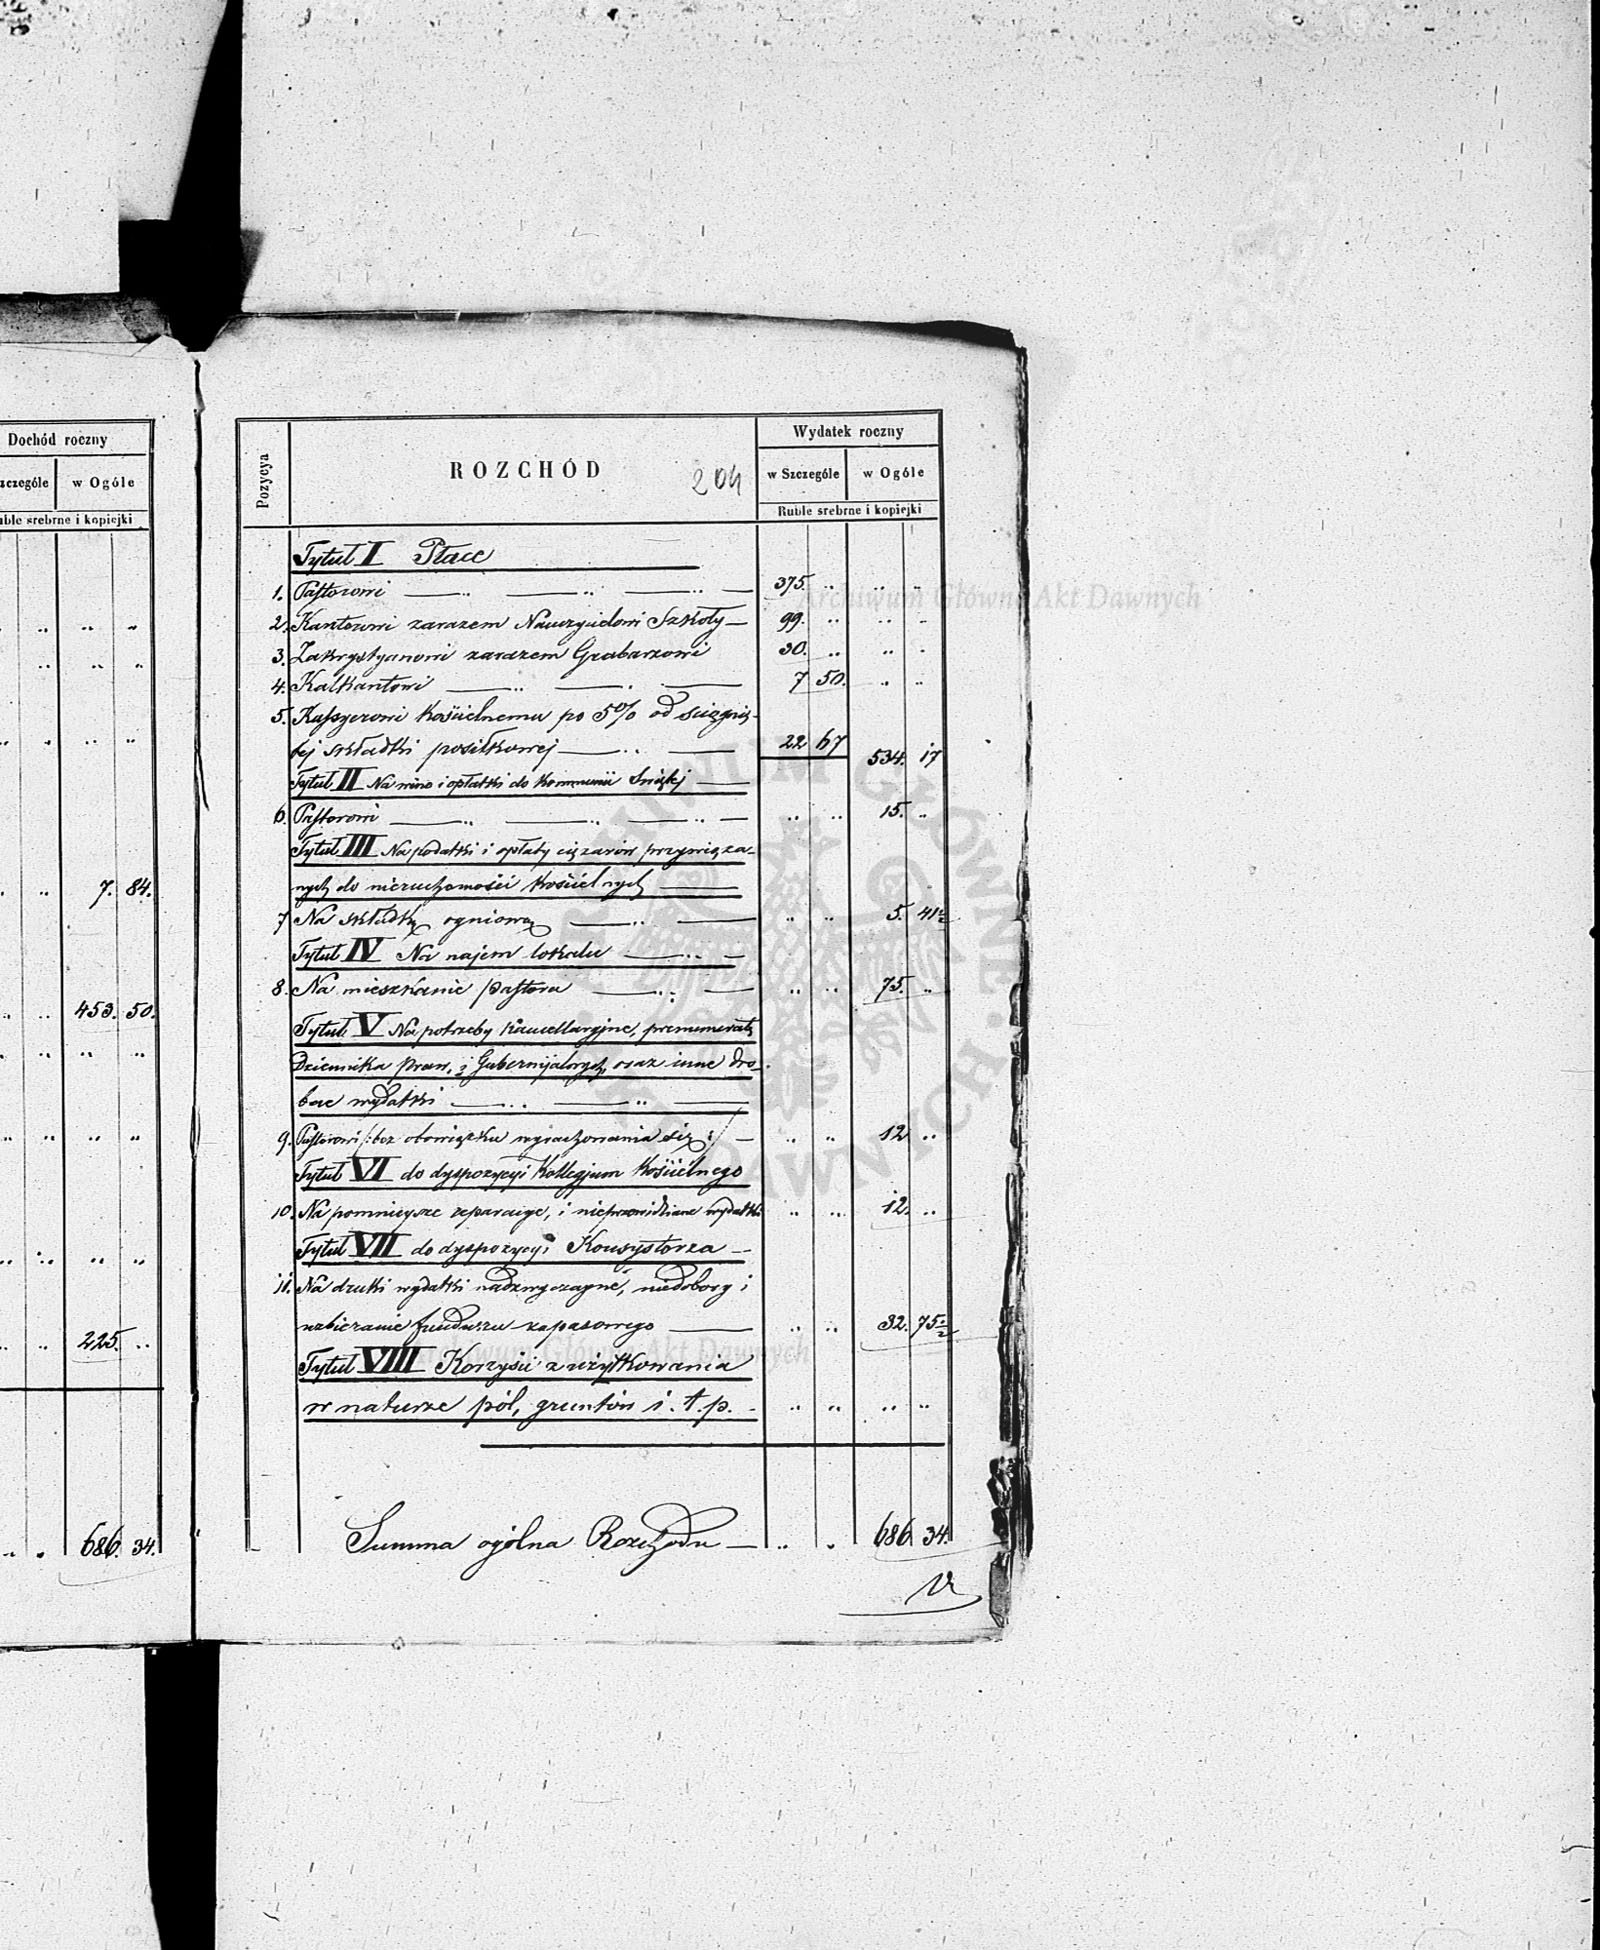 Dochód roczny
w Ogóle
srebrne i kopiejki
7. 84.
453. 50.
225. ..
686. 34.
Pozycya
ROZCHÓD
204
Wydatek roczny
w Szczególe w Ogóle
Ruble srebrne i kopiejki
Tytuł I Płace
1. Pastorowi 375. ..
2. Kantorowi zarazem Nauczycielowi Szkoły 99. ..
3. Zakrystyanowi zarazem Grabarzowi 30. ..
4. Kalkantowi 7 50.
5. Kassyerowi kościelnemu po 5% od ściągnię-
tej składki posiłkowej 22 67 534. 17
Tytuł II Na wino i opłatki do kommunii Świętej
6. Pastorowi 15. ..
Tytuł III Na podatki i opłaty ciężarów przywiąza-
nych do nieruchomości kościelnych
7 Na składkę ogniową 5. 41½
Tytuł IV Na najem lokalu
8. Na mieszkanie Pastora 75. ..
Tytuł V Na potrzeby kancellaryjne, prenumeratę
Dziennika Praw, i Gubernijalnych, oraz inne dro-
bne wydatki
9. Pastorowi /:bez obowiązku wyrachowania się:/ 12 ..
Tytuł VI do dyspozycyi Kollegjum Kościelnego
10. Na pomniejsze reparacye, i nieprzewidziane wydatki 12. ..
Tytuł VII do dyspozycyi Konsystorza
11. Na druki wydatki nadzwyczajne, niedobory i
uzbieranie funduszu zapasowego 32. 75½
Tytuł VIII Korzyści z użytkowania
w naturze pól, gruntów i. t. p.
Summa ogólna Rozchodu 686 34.
Archiwum Główne Akt Dawnych
Archiwum Główne Akt Dawnych
ARCHIWUM GŁÓWNE AKT DAWNYCH